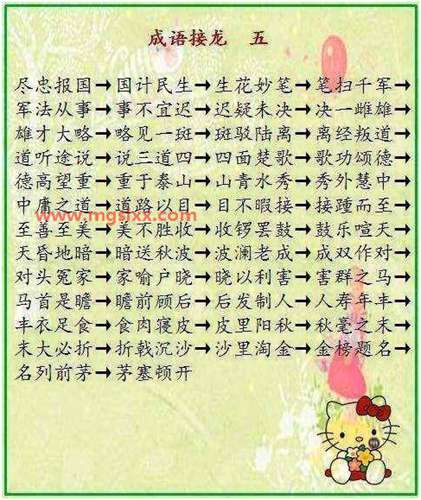 成语接龙 五
尽忠报国→国计民生→生花妙笔→笔扫千军→
军法从事→事不宜迟→迟疑未决→决一雌雄→
雄才大略→略见一斑→斑驳陆离→离经叛道→
道听途说→说三道四→四面楚歌→歌功颂德→
德高望重→重于泰山→山青水秀→秀外慧中→
中庸之道→道路以目→目不暇接→接踵而至→
www.mgsixx.com
至善至美→美不胜收→收锣罢鼓→鼓乐喧天→
天昏地暗→暗送秋波→波澜老成→成双作对→
对头冤家→家喻户晓→晓以利害→害群之马→
马首是瞻→瞻前顾后→后发制人→人寿年丰→
丰衣足食→食肉寝皮→皮里阳秋→秋毫之末→
末大必折→折戟沉沙→沙里淘金→金榜题名→
名列前茅→茅塞顿开